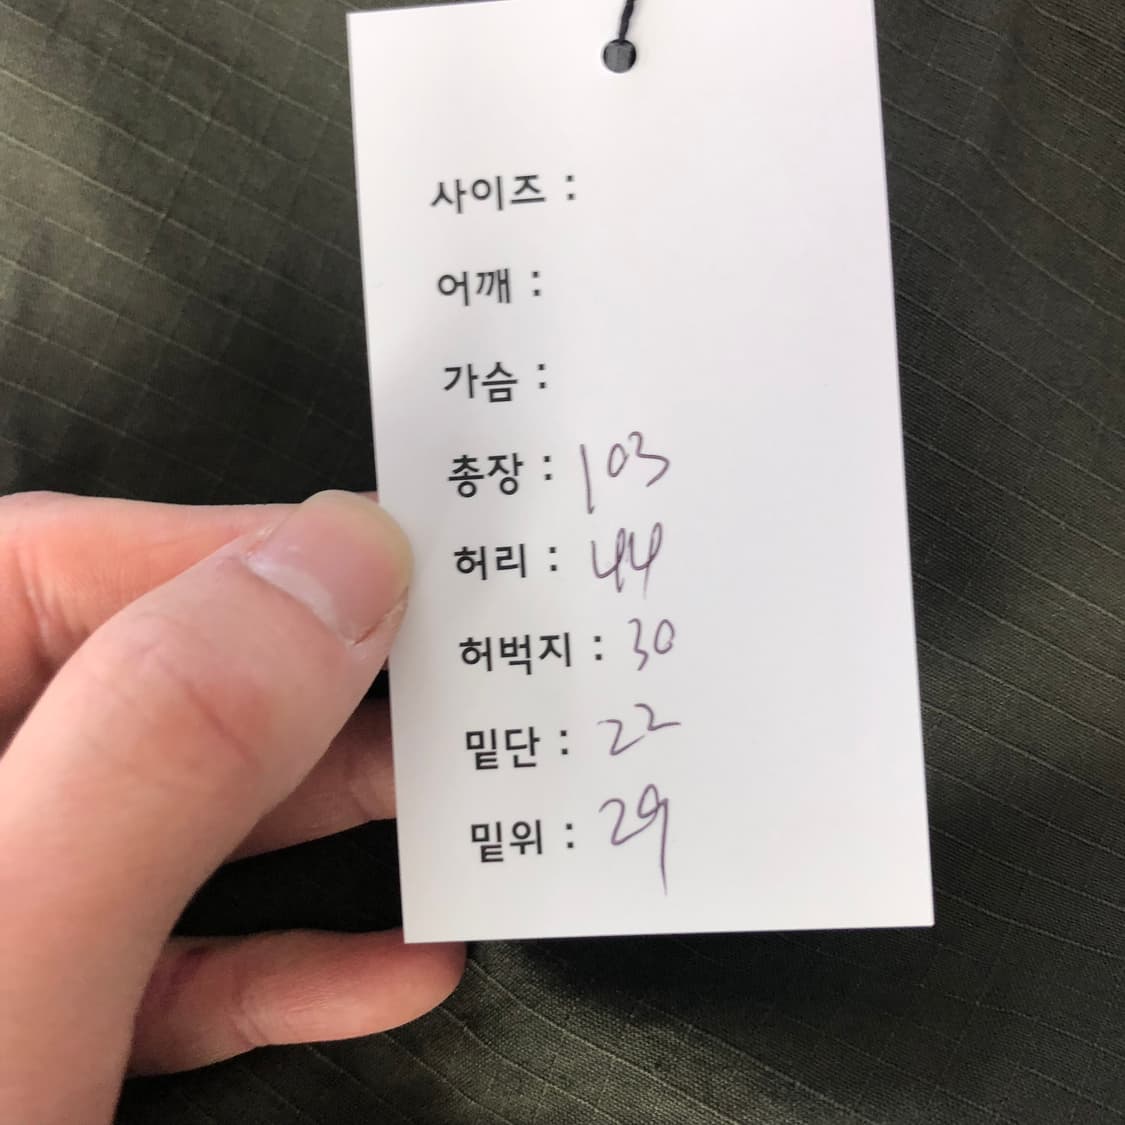 사이즈 :
어깨 :
가슴 :
총장 : 103
허리 : 44
허벅지 : 30
밑단 : 22
밑위 : 29